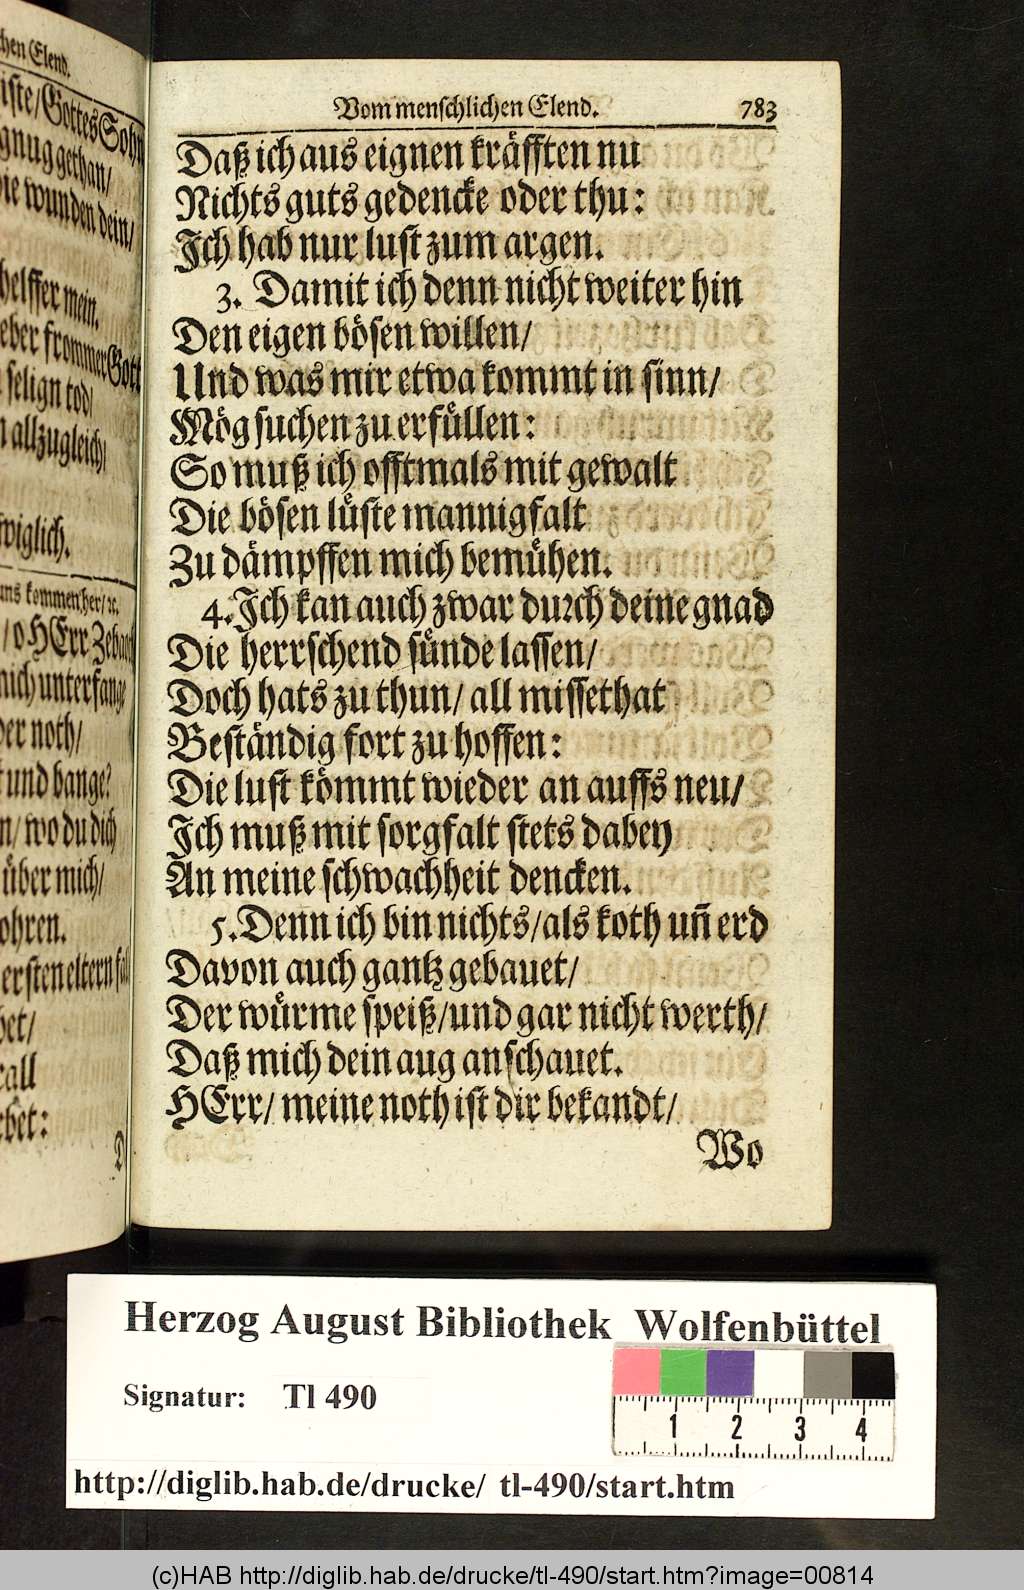 chen Elend.
iste/Gottes Sohn
gnug gethan/
die wunden dein/
helffer mein.
eber frommer Gott
selign tod/
n allzugleich/
wiglich.
uns kommen her/ ꝛc.
/o HErr Zebaoth
mich unterfange
der noth/
t und bange?
n/ wo du dich
über mich/
ohren.
ersten eltern fall
bet/
rall
rbet:
D
Vom menschlichen Elend. 783
Daß ich aus eignen kräfften nu
Nichts guts gedencke oder thu:
Ich hab nur lust zum argen.
3. Damit ich denn nicht weiter hin
Den eigen bösen willen/
Und was mir etwa kommt in sinn/
Mög suchen zu erfüllen:
So muß ich offtmals mit gewalt
Die bösen lüste mannigfalt
Zu dämpffen mich bemühen.
4. Ich kan auch zwar durch deine gnad
Die herrschend sünde lassen/
Doch hats zu thun/ all missethat
Beständig fort zu hassen:
Die lust kömmt wieder an auffs neu/
Ich muß mit sorgfalt stets dabey
An meine schwachheit dencken.
5. Denn ich bin nichts/als koth uñ erd
Davon auch gantz gebauet/
Der würme speiß/und gar nicht werth/
Daß mich dein aug anschauet.
HErr/ meine noth ist dir bekandt/
Wo
Herzog August Bibliothek Wolfenbüttel
Signatur: Tl 490
1 2 3 4
http://diglib.hab.de/drucke/ tl-490/start.htm
(c)HAB http://diglib.hab.de/drucke/tl-490/start.htm?image=00814